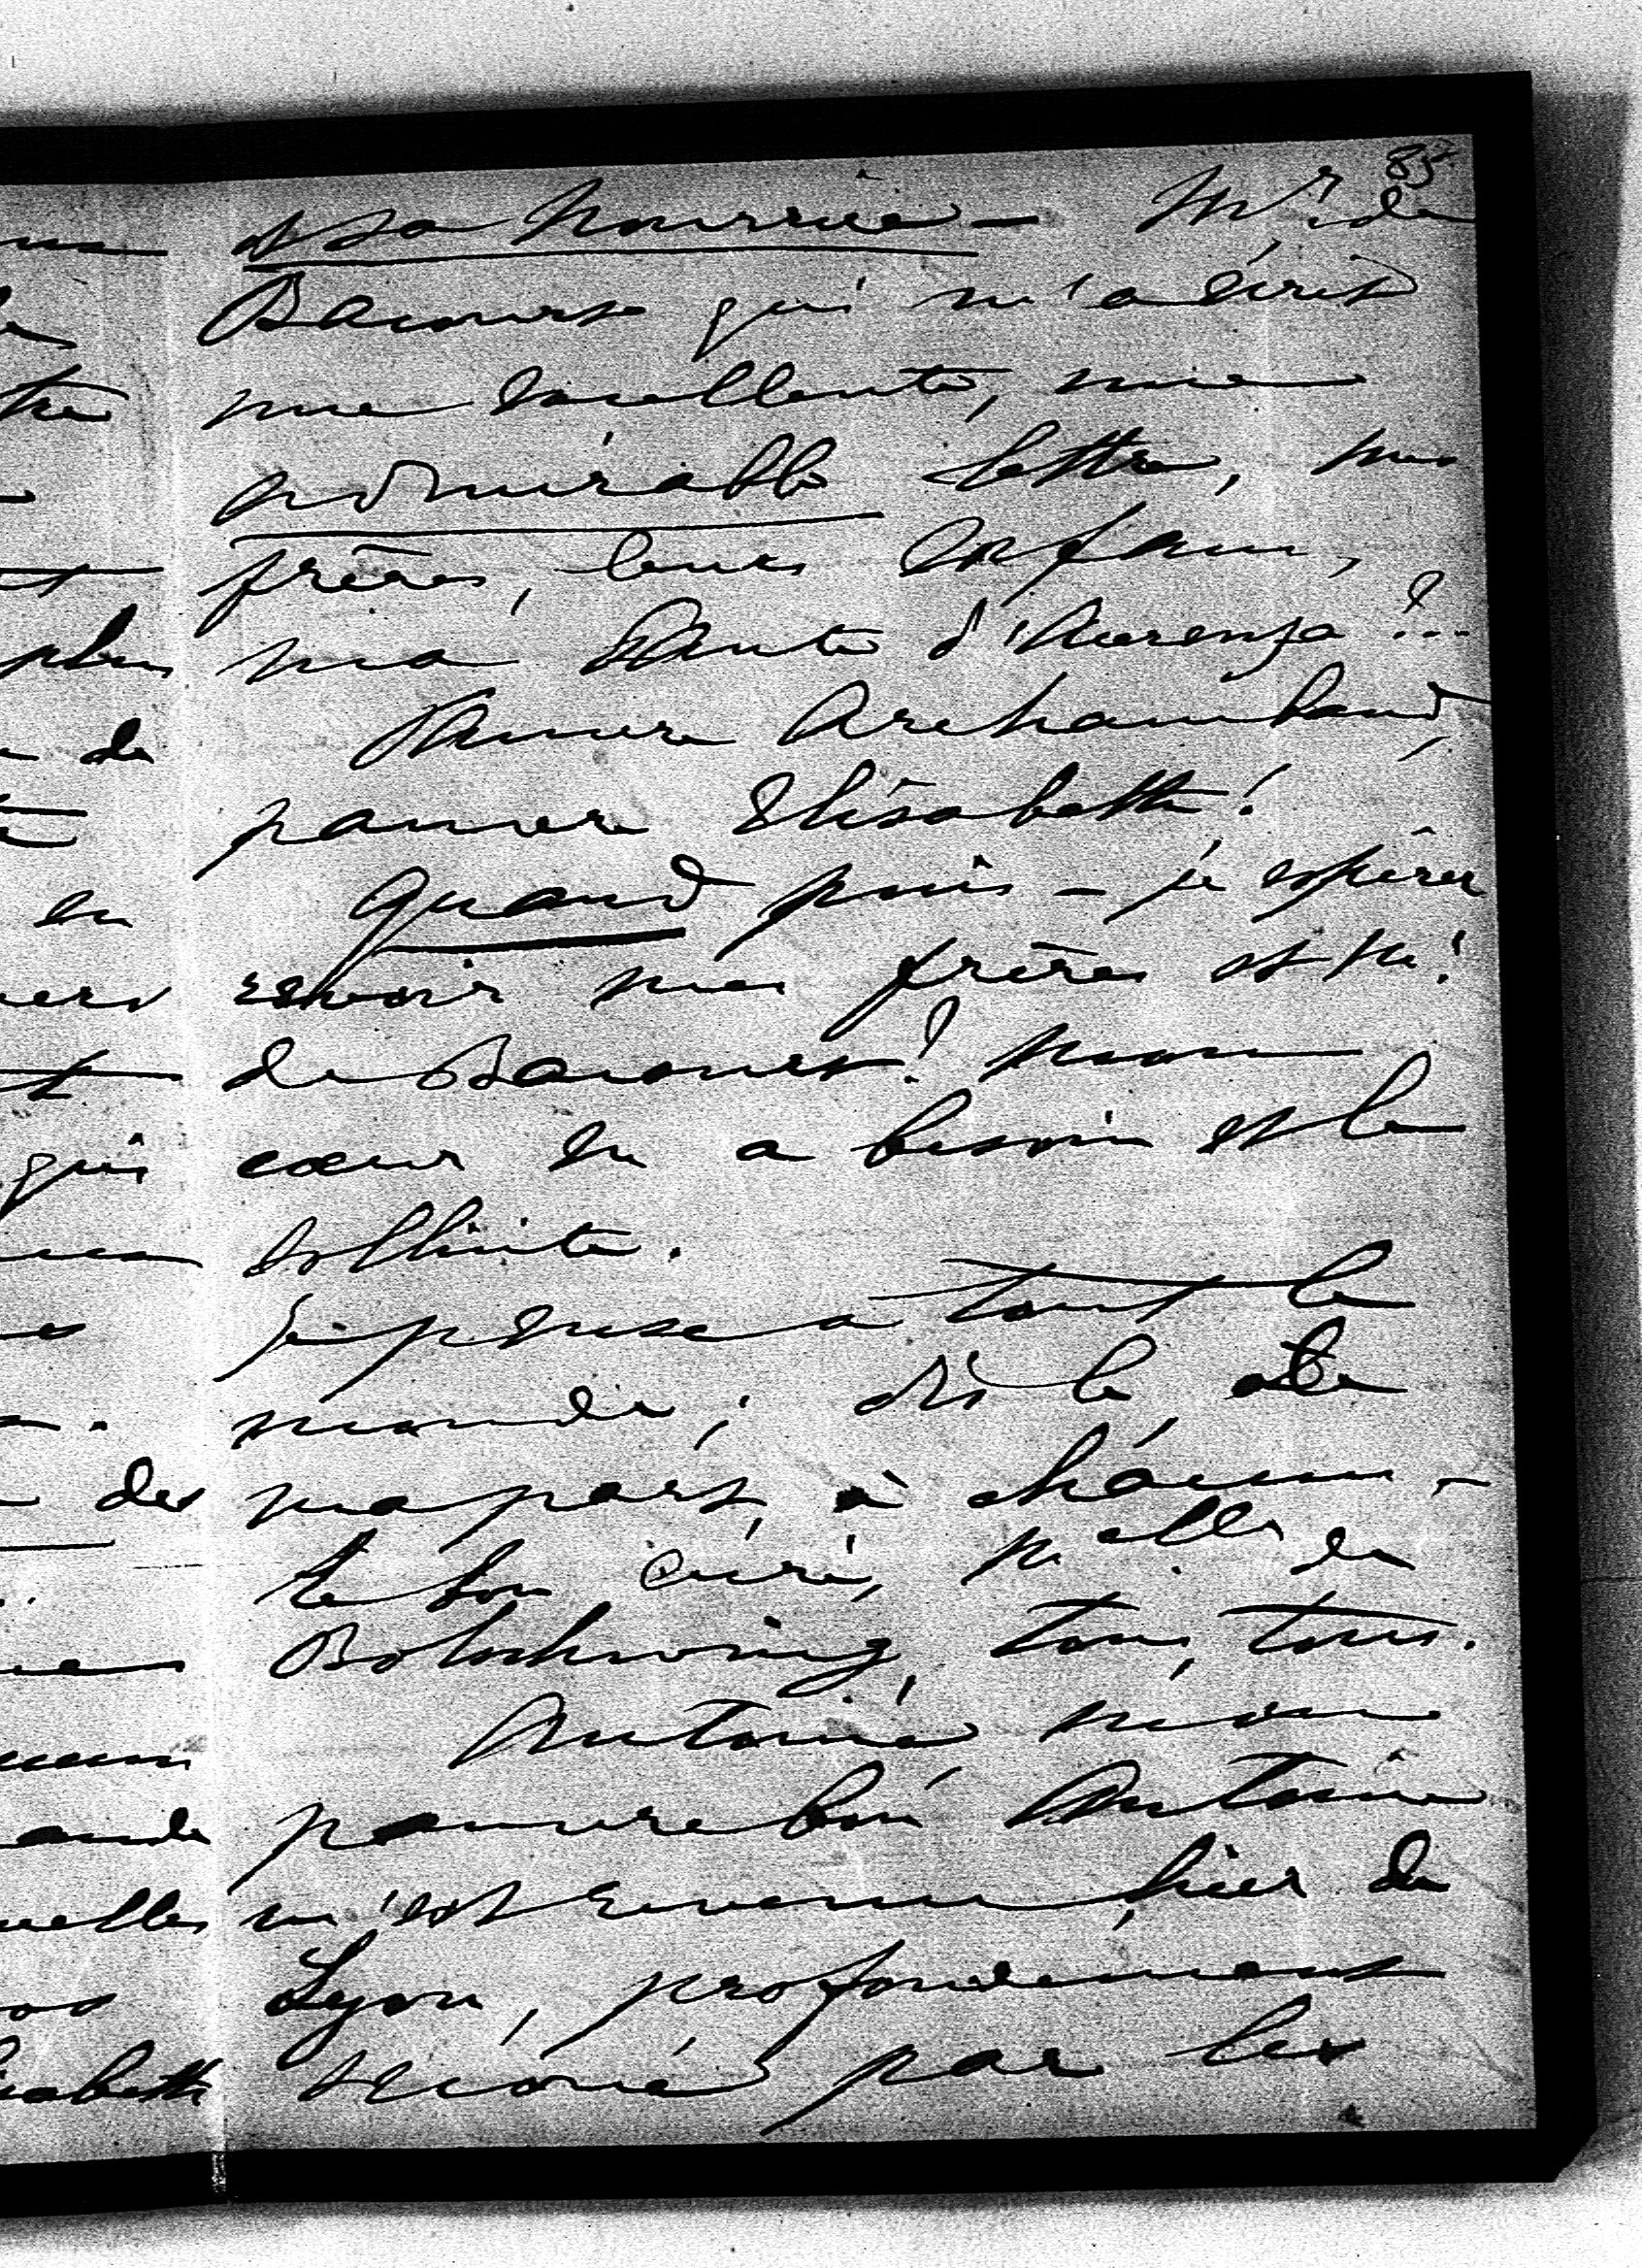 85
et sa nourrice – Mr. de
Bacourt qui m'a écrit
une excellente, une
admirable lettre, mes
frères, leurs enfans,
ma Tante d'Acerenza?...
Pauvre Archambaud,
pauvre Elisabeth!
Quand puis-je espérer
revoir mes frères et M.
de Bacourt? mon
cœur en a besoin et le
sollicite.
Je pense à tout le
monde; dis le, de
ma part, à chacun –
le bon Curé, Melle de
Bolschwing, tous, tous.
Antoine mon
pauvre bon Antoine
m'est revenu, hier de
Lyon, profondément
secoué par les
plus
de
en
qui
des